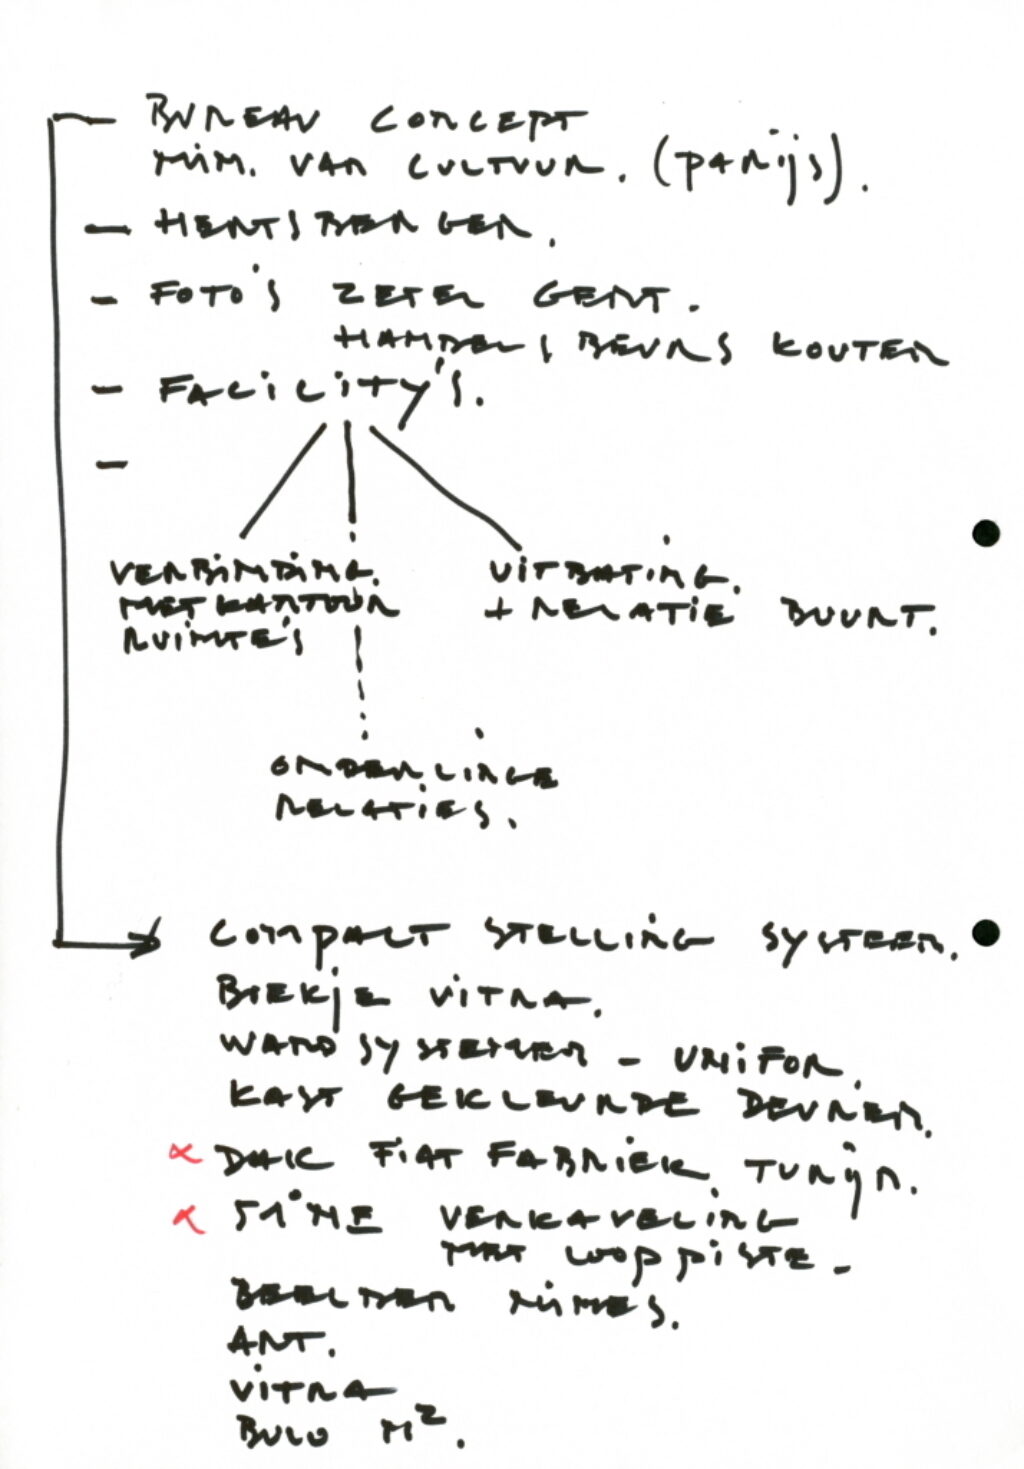 — BUREAU CONCEPT
MIN. VAN CULTUUR. (PARIJS).
— HERTSBERGEN.
— FOTO'S ZETEL GENT.
HANDELSBEURS KOUTER
— FACILITY'S.
—
VERBINDING.
MET KANTOOR
RUIMTE'S
UITBATING.
+ RELATIE BUURT.
ONDERLINGE
RELATIES.
COMPACT STELLING SYSTEEM.
BOEKJE VITRA.
WAND SYSTEMEN - UNIFOR.
KAST GEKLEURDE DEUREN.
DAK FIAT FABRIEK TURIJN.
VERKAVELING
MET LOOPPISTE -
BEELDEN NIMES.
ART.
VITRA
BULO M².